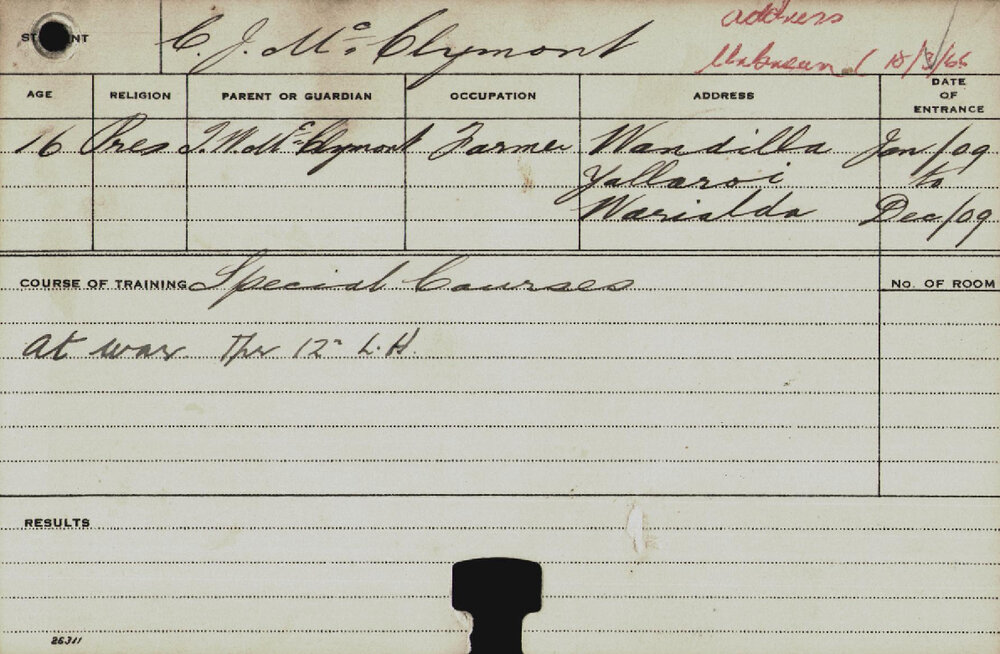 address
Unknown 18/3/65
ST NT C. J. McClymont
AGE RELIGION PARENT OR GUARDIAN OCCUPATION ADDRESS DATE OF ENTRANCE
16 Pres J. W. McClymont Farmer Wandilla Jan/09
Yallaroi to
Warialda Dec/09
COURSE OF TRAINING Special Courses No. OF ROOM
At war. Tpr 12th L.H.
RESULTS
26311